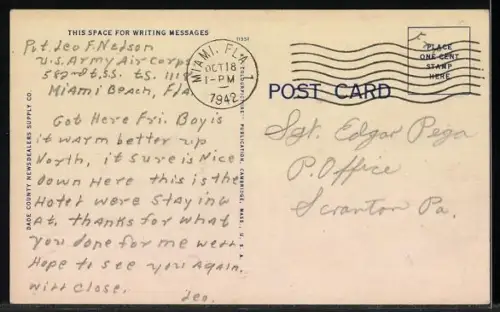 THIS SPACE FOR WRITING MESSAGES
Pvt. Leo F. Nelson
U.S. Army Air Corps
582nd T.S.S. T.S. 1118
Miami Beach, Fla.
Got Here Fri. Boy is
it warm better up
North, it sure is Nice
down Here this is the
Hotel were staying
At. thanks for what
you done for me
Hope to see you Again.
will close.
Leo.
DADE COUNTY NEWSDEALERS SUPPLY CO.
MIAMI, FLA. 1
OCT 18
1-PM
1942
PLACE
ONE CENT
STAMP
HERE
POST CARD
Sgt. Edgar
P. Office
Scranton Pa.
PUBLICATION, CAMBRIDGE, MASS., U.S.A.